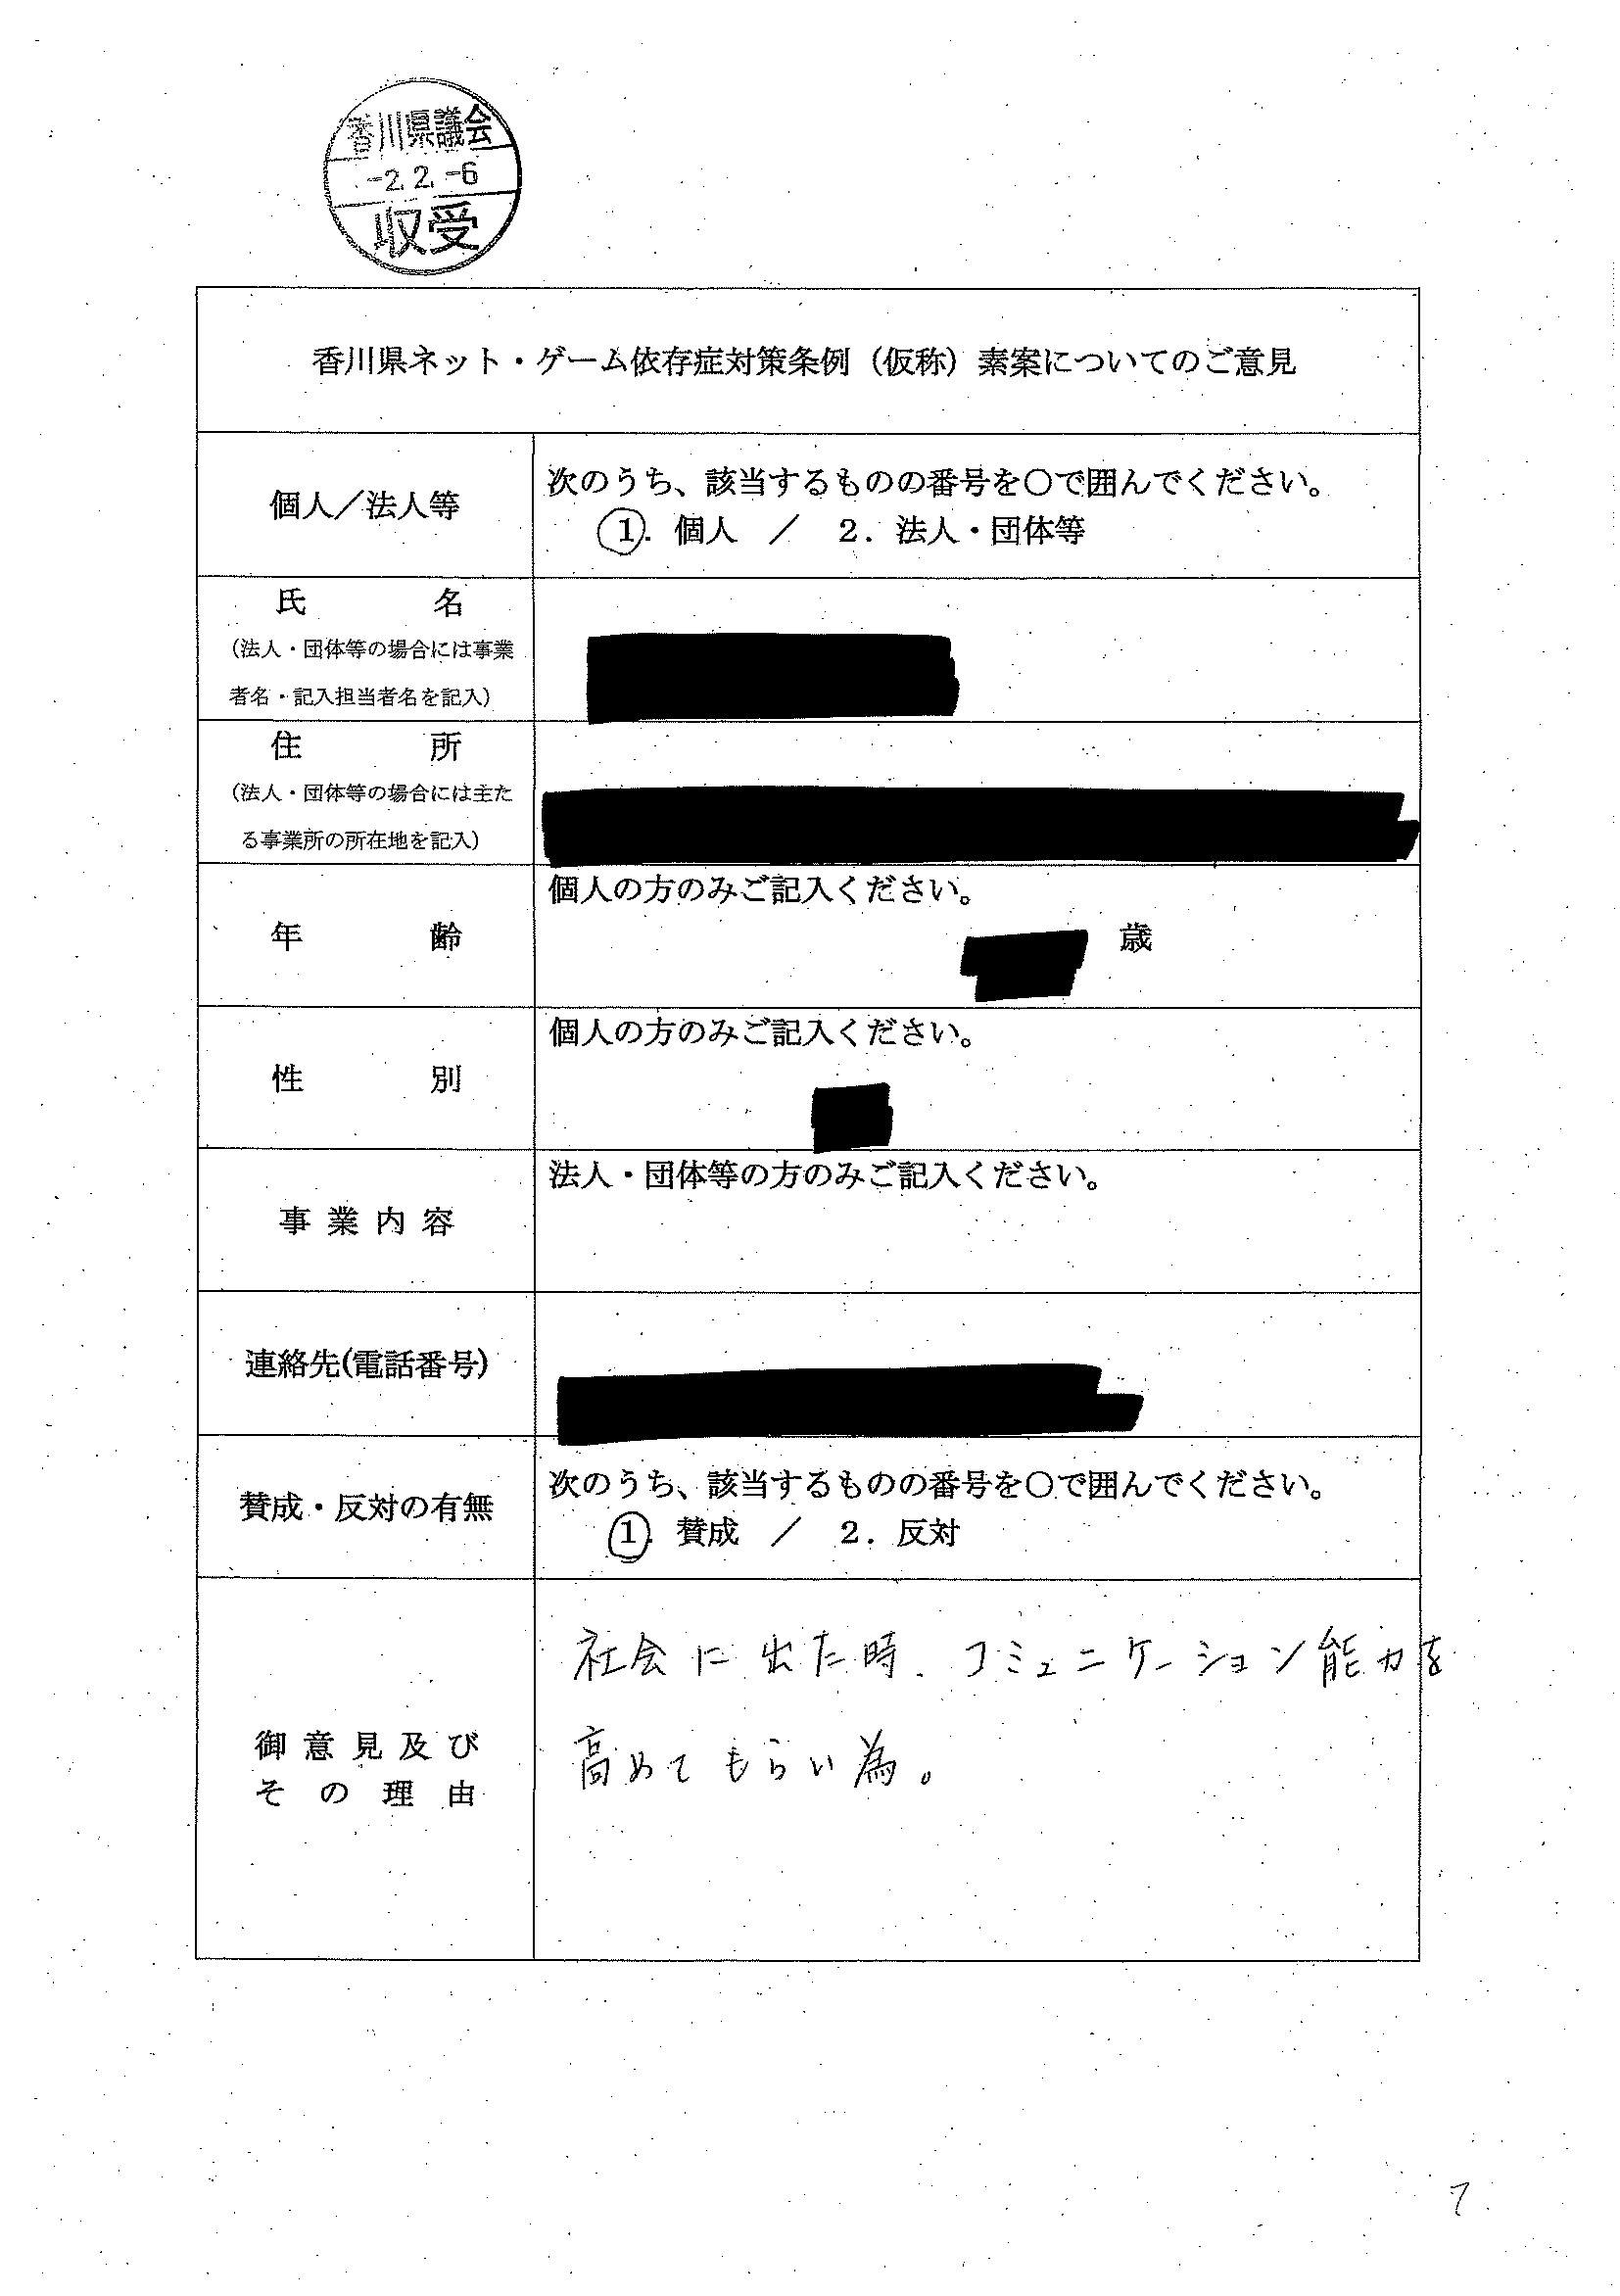 香川県議会
-2.2.-6
収受
香川県ネット・ゲーム依存症対策条例（仮称）素案についてのご意見
個人／法人等
次のうち、該当するものの番号を〇で囲んでください。
1. 個人 ／ 2. 法人・団体等
氏名
（法人・団体等の場合には事業
者名・記入担当者名を記入）
住所
（法人・団体等の場合には主た
る事業所の所在地を記入）
年齢
個人の方のみご記入ください。
歳
性別
個人の方のみご記入ください。
事業内容
法人・団体等の方のみご記入ください。
連絡先(電話番号)
賛成・反対の有無
次のうち、該当するものの番号を〇で囲んでください。
1. 賛成 ／ 2. 反対
御意見及び
その理由
社会に出た時、コミュニケーション能力を
高めてもらい為。
7